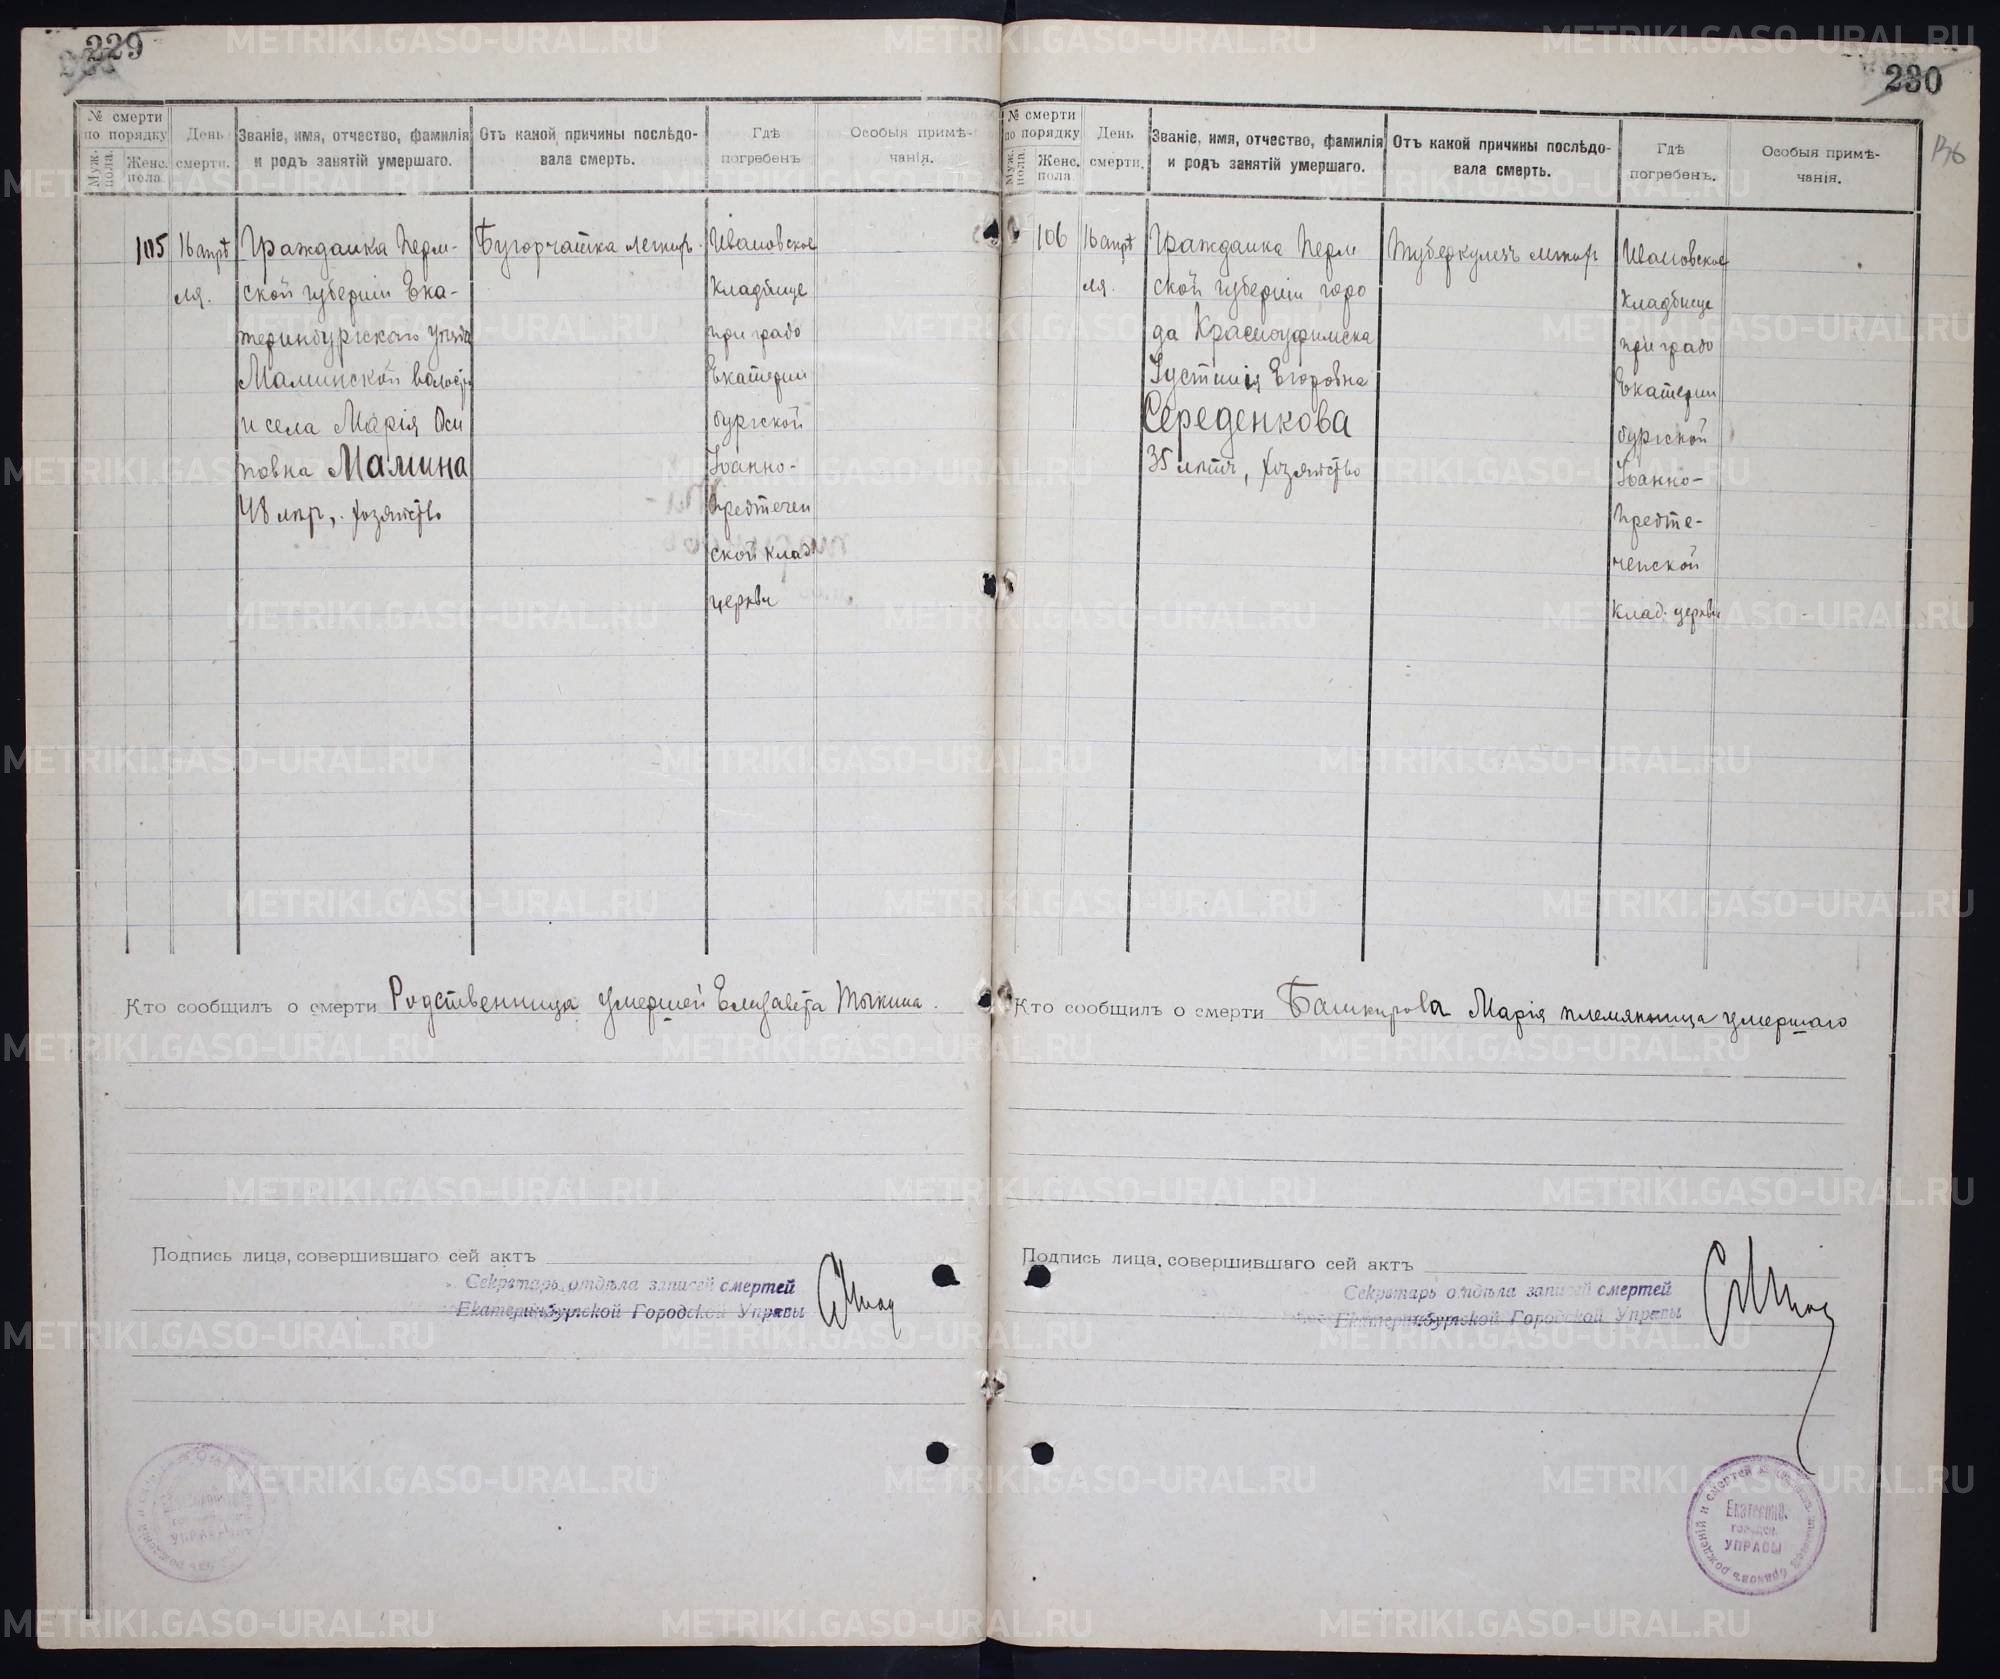 229
№ смерти по порядку
Муж. пола.
Женс. пола.
День смерти.
Званіе, имя, отчество, фамилія и родъ занятій умершаго.
Отъ какой причины послѣдовала смерть.
Гдѣ погребенъ
Особыя примѣчанія.
105
16 апрѣ
ля.
Гражданка Перм-
ской губерніи Ека-
теринбургскаго уѣзда
Маминской волости
и села Марія Оси
повна Мамина
48 лѣтъ, хозяйство
Бугорчатка легкихъ
Ивановское
кладбище
при градо
Екатерин
бургской
Іоанно-
Предтечен
ской клад
церкви
Кто сообщилъ о смерти Родственница умершей Елизавета Тыкина.
Подпись лица, совершившаго сей актъ
Секретарь отдѣла записей смертей
Екатеринбургской Городской Управы
230
№ смерти по порядку
Муж. пола.
Женс. пола.
День смерти.
Званіе, имя, отчество, фамилія и родъ занятій умершаго.
Отъ какой причины послѣдовала смерть.
Гдѣ погребенъ.
Особыя примѣчанія.
106
16 апрѣ
ля.
Гражданка Перм
ской губерніи горо
да Красноуфимска
Іустинія Егоровна
Середенкова
35 лѣтъ, хозяйство
Туберкулезъ легкихъ
Ивановское
кладбище
при градо
Екатерин
бургской
Іоанно-
Предте-
ченской
клад. церкви
Кто сообщилъ о смерти Башкирова Марія племянница умершаго
Подпись лица, совершившаго сей актъ
Секретарь отдѣла записей смертей
Екатеринбургской Городской Управы
Екатеринб.
городск.
УПРАВЫ
METRIKI.GASO-URAL.RU